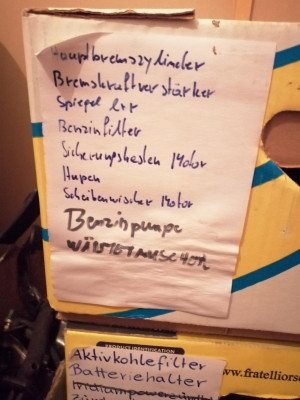 Hauptbremszylinder
Bremskraftverstärker
Spiegel l+r
Benzinfilter
Sicherungskasten Motor
Hupen
Scheibenwischer Motor
Benzinpumpe
WÄRMETAUSCHER
PRODUCT IDENTIFICATION
Aktivkohlefilter
Batteriehalter
www.fratelliors